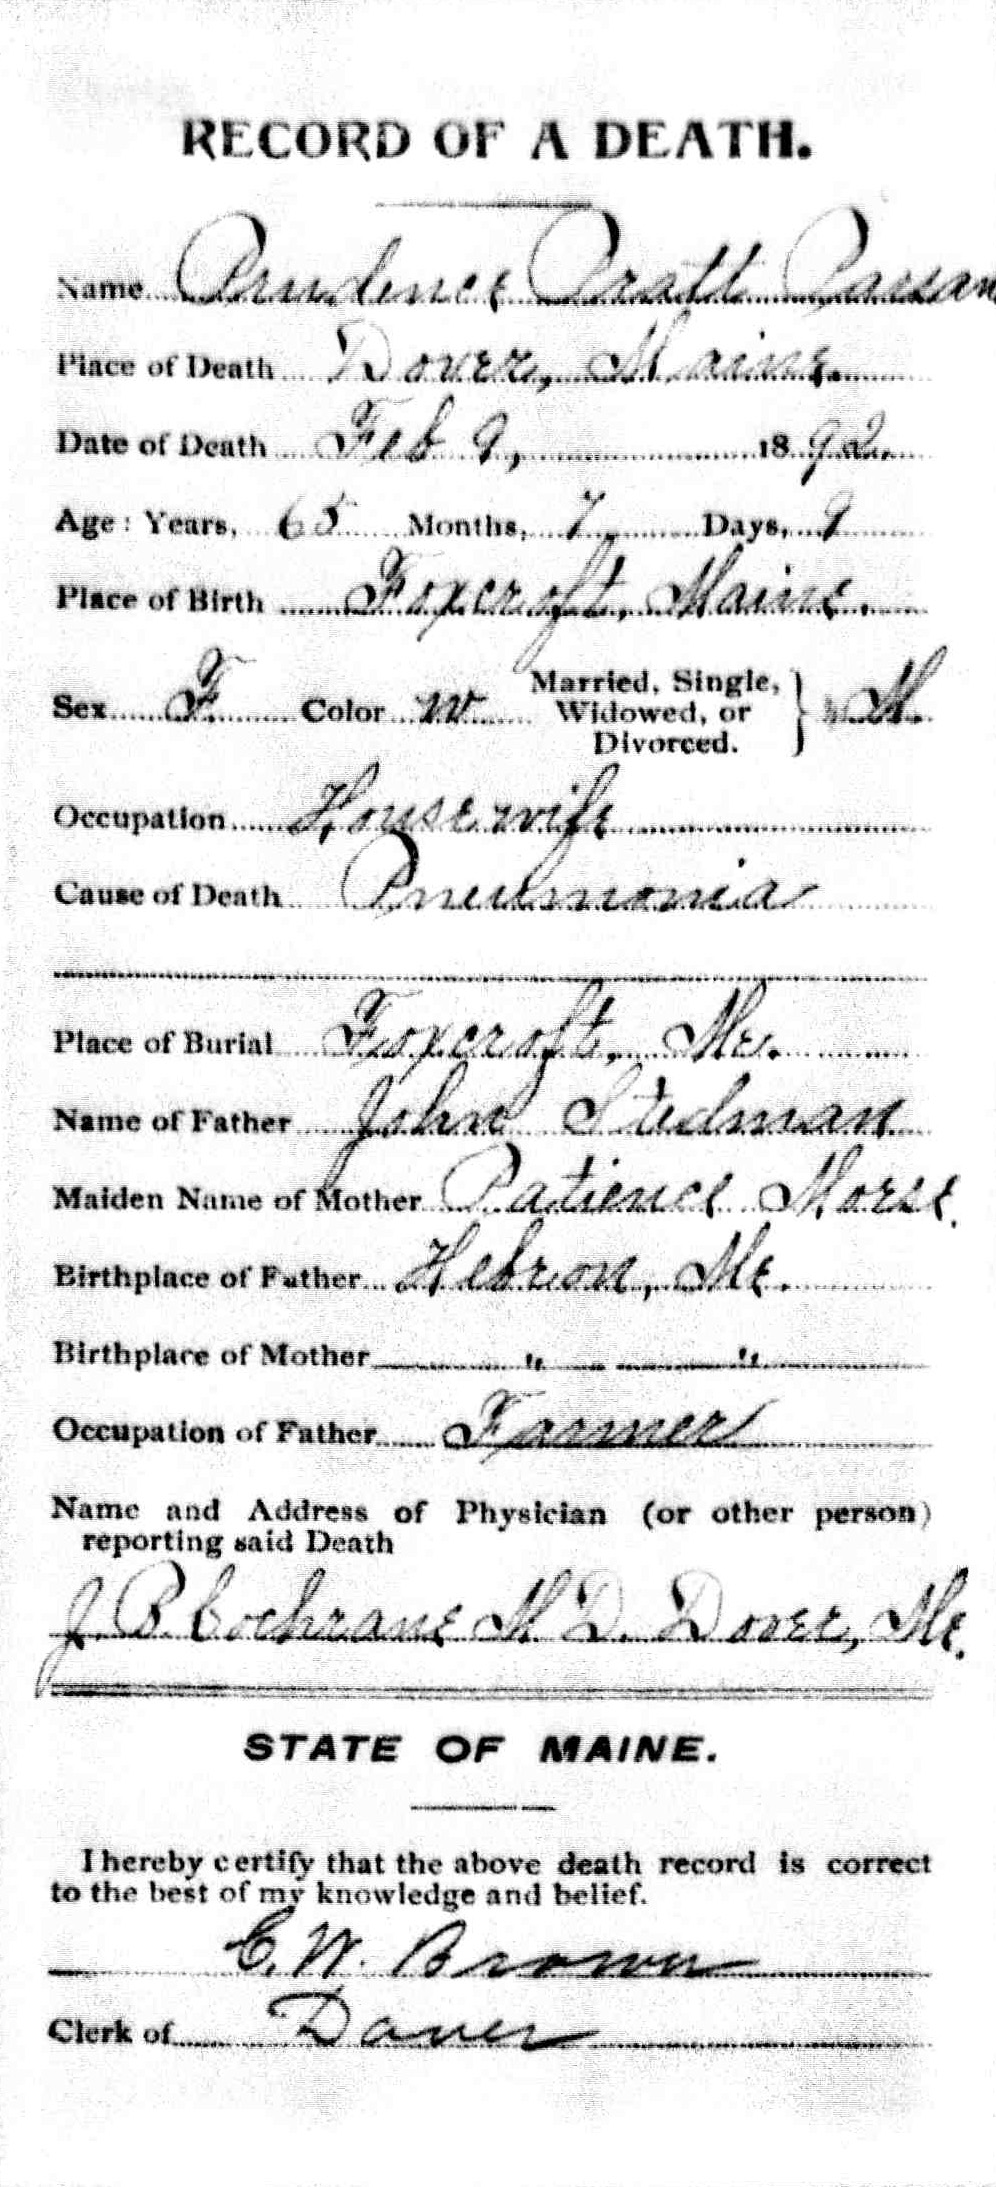 RECORD OF A DEATH.
Name Prudence Pratt
Place of Death Dover, Maine.
Date of Death Feb 9, 1892.
Age: Years, 65 Months, 7 Days, 9
Place of Birth Foxcroft, Maine.
Married, Single,
Sex F. Color W Widowed, or } M.
Divorced.
Occupation Housewife
Cause of Death Pneumonia
Place of Burial Foxcroft, Me.
Name of Father John Stedman
Maiden Name of Mother Patience Morse.
Birthplace of Father Hebron, Me.
Birthplace of Mother " "
Occupation of Father Farmer
Name and Address of Physician (or other person)
reporting said Death
J. B. Cochrane M. D. Dover, Me.
STATE OF MAINE.
I hereby certify that the above death record is correct
to the best of my knowledge and belief.
C. W. Brown
Clerk of Dover